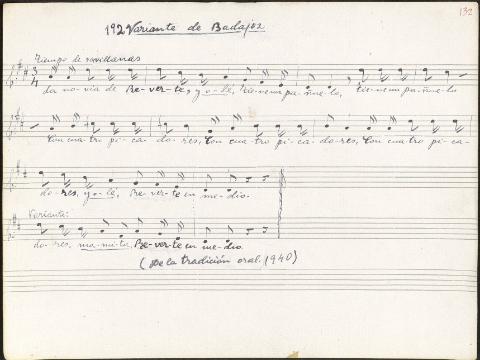 132
192 Variante de Badajoz
Tiempo de sevillanas
3/4
La no-via de Re-ver-te, y o-lé, tie-ne un pa-ñue-lo, tie-ne un pa-ñue-lo
Con cua-tro pi-ca-do-res, Con cua-tro pi-ca-do-res, Con cua-tro pi-ca-
do-res, y o-lé, Re-ver-te en me-dio.
Variante:
do-res, ma-mi-ta, Re-ver-te en me-dio.
(De la tradición oral. 1940)